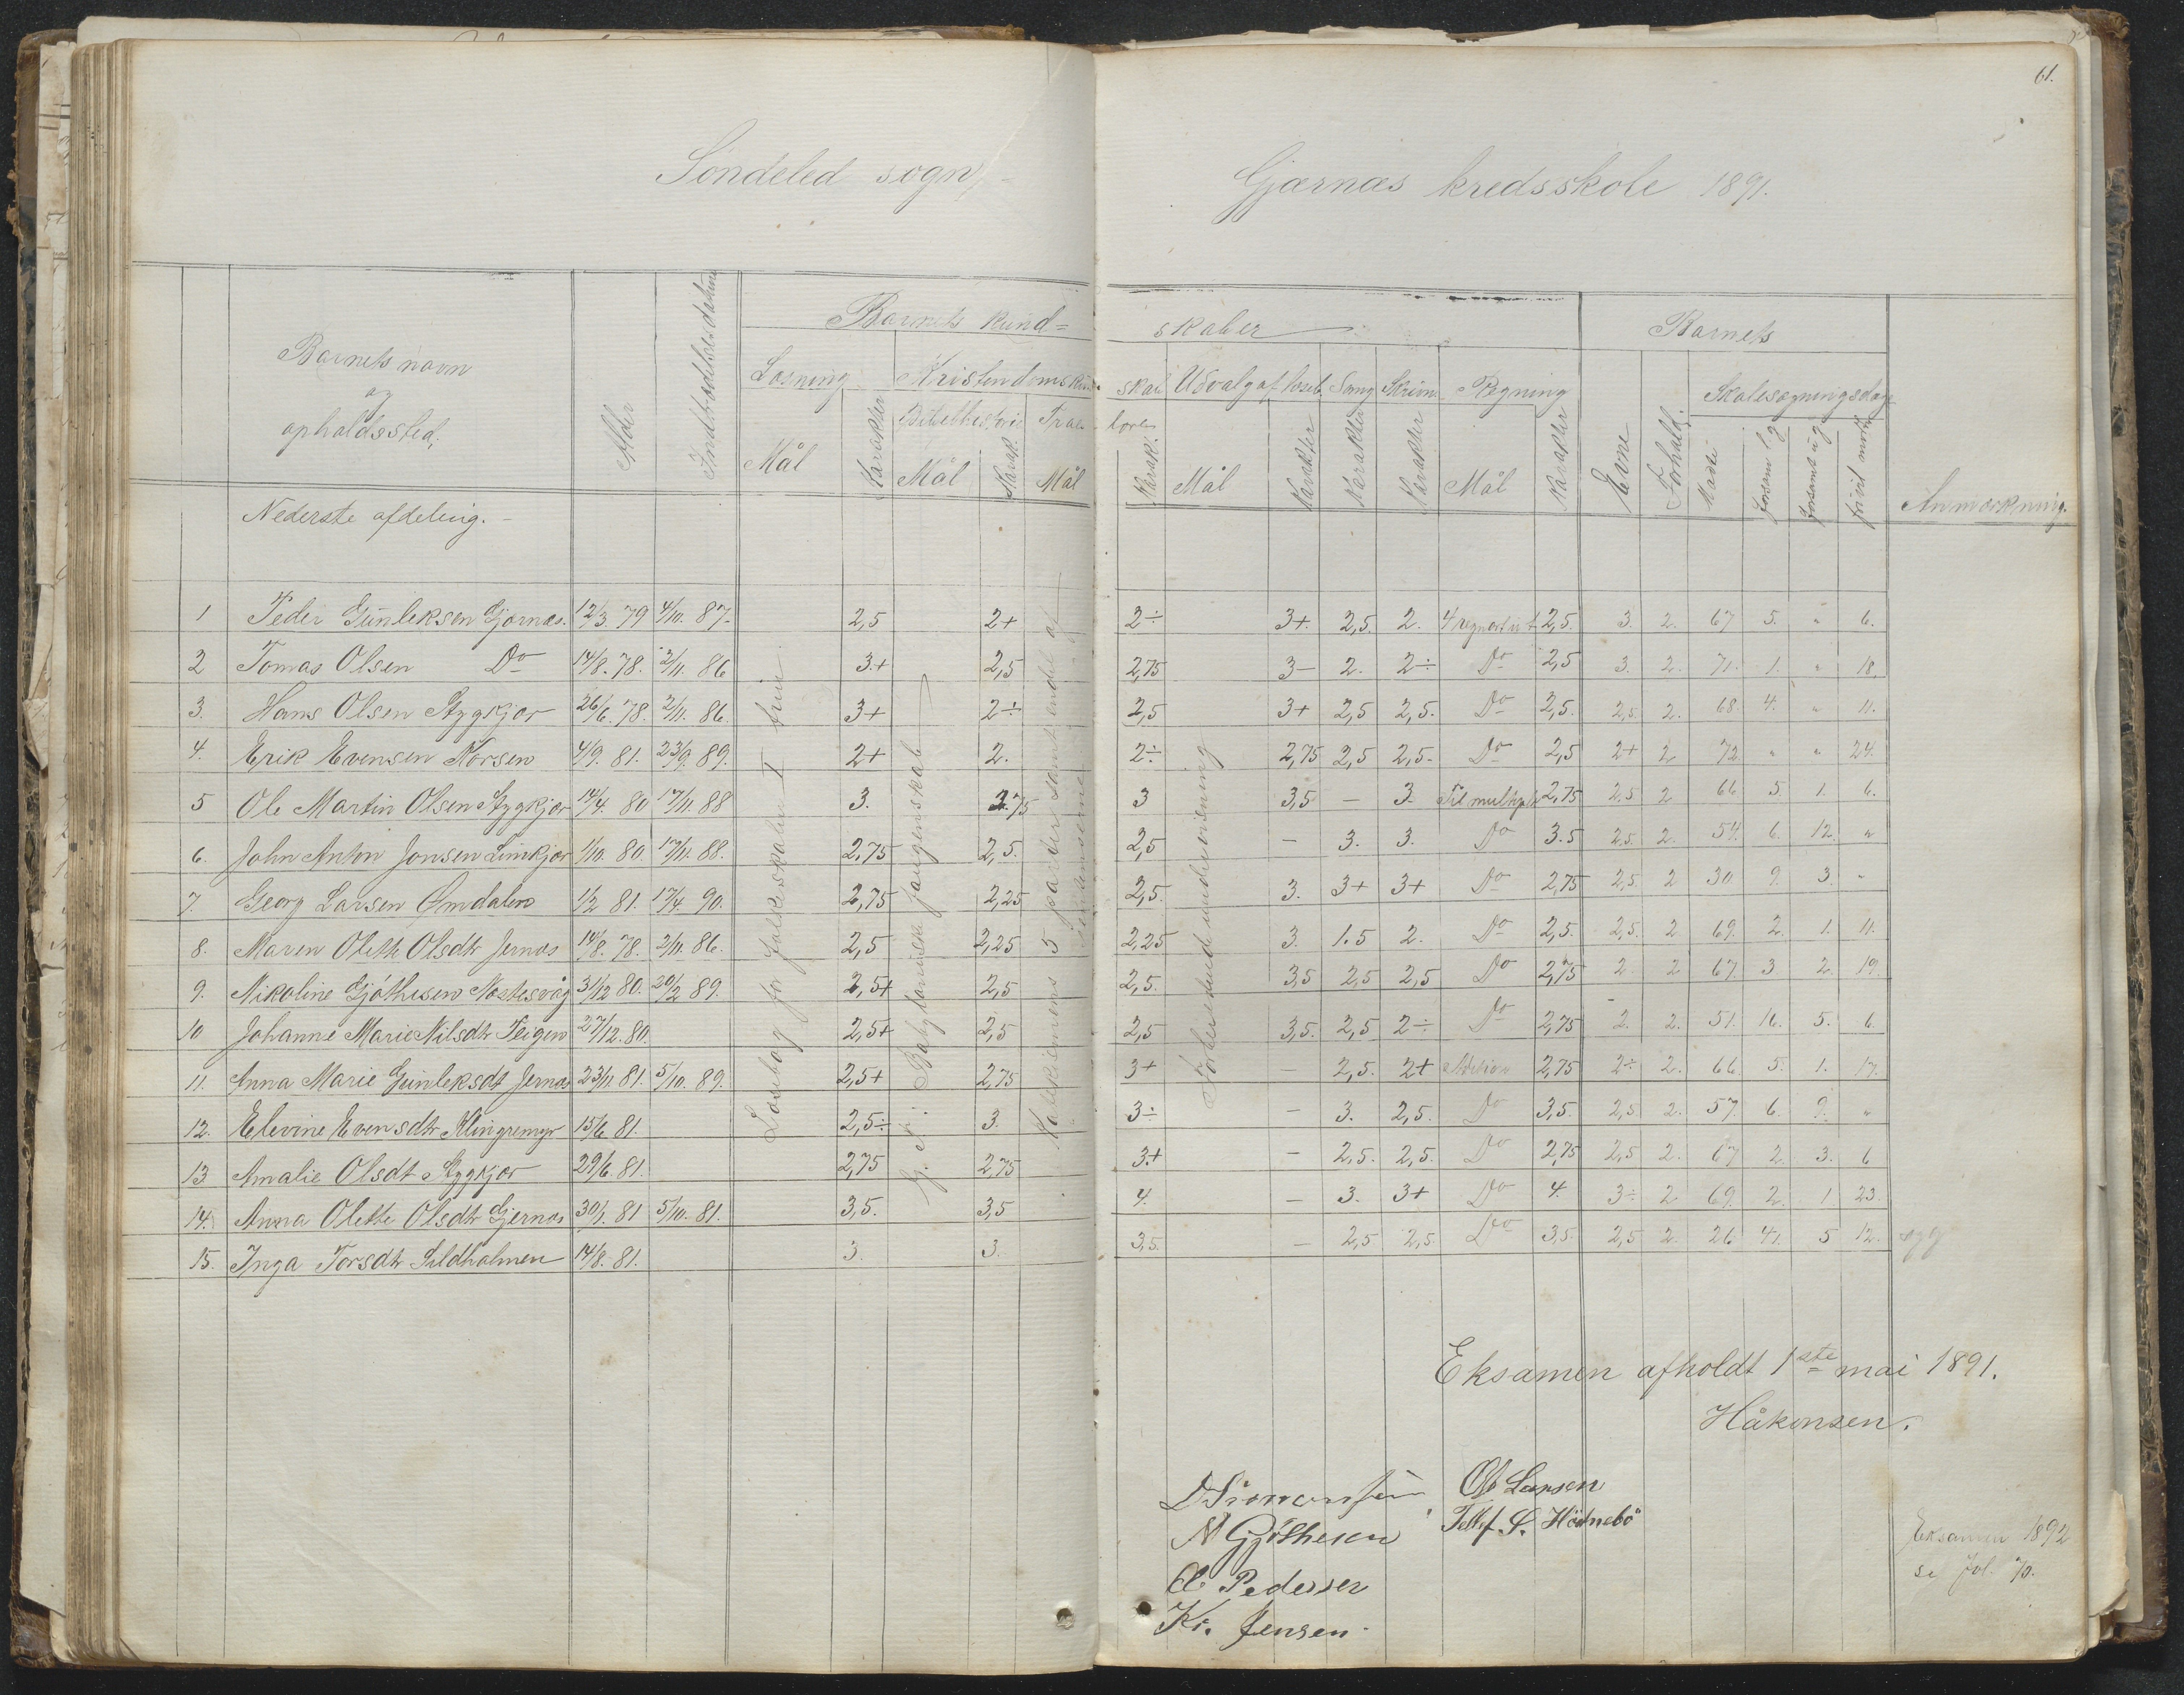 61.
Söndeled sogn,
Gjærnæs kredsskole 1891.
Barnets navn og opholdssted.
Alder
Indtrædelsesdatum
Barnets kund=
skaber
Læsning
Mål
Karakter
Kristendoms
Bibelhistorie
Mål
Karak.
Mål
skab
lære
Karak.
Udvalg af læseb.
Mål
Karakter
Sang
Karakter
Skrivn.
Karakter
Regning
Mål
Karakter
Barnets
Evne
Forhold.
Skolesøgningsdage
Mødte
forsømt l g
forsømt u g
frivil mødt
Anmærkning.
Nederste afdeling.
Læsebog for folkeskolen I trin.
G. T. Babylonisk fangenskab
Katekismens 5 parter samt endel af
Forberedende undervisning
1 Peder Günleksen Gjernæs. 12/3. 79 4/10. 87. 2,5 2+ 2÷ 3+. 2,5. 2. 4 regnearter 2,5. 3. 2. 67 5. " 6.
2 Tomas Olsen Do 14/8. 78. 2/11. 86 3+ 2,5 2,75 3- 2. 2÷ Do 2,5 3. 2. 71. 1. " 18.
3. Hans Olsen Stygkjær 26/6. 78. 2/11. 86. 3+ 2÷ 2,5 3+ 2,5 2,5. Do 2,5. 2,5. 2. 68. 4. " 11.
4. Erik Evensen Norsen 4/9. 81. 23/9. 89. 2+ 2. 2÷ 2,75 2,5 2,5. Do 2,5 2+ 2 72 " " 24.
5 Ole Martin Olsen Stygkjær 14/4. 80 17/11. 88 3. 2.75 3 3,5 - 3. Til multipl. 2,75 2,5 2 66 5 1. 6.
6. John Anton Jonsen Limkjær 1/10. 80. 17/11. 88. 2,75 2,5. 2,5 - 3. 3. Do 3.5 2,5. 2. 54. 6. 12. "
7. Georg Larsen Omdalen 1/2 81. 17/4. 90. 2,75 2,25 2,5. 3. 3+ 3+ Do 2,75 2,5. 2 30 9. 3. "
8. Maren Olette Olsdtr Jernæs 14/8. 78. 2/11. 86. 2,5 2,25 2,25 3. 1.5 2. Do 2,5. 2,5. 2 69. 2. 1. 11.
9. Nikoline Gjöthesen Næstesvåg 31/12 80. 20/2 89. 2,5+ 2,5 2,5. 3,5 2,5 2,5 Do 2,75 2. 2 67 3. 2. 19.
10 Johanne Marie Nilsdtr Teigen 27/12. 80. 2,5+ 2,5 2,5 3,5. 2,5 2÷ Do 2,75 2. 2. 51. 16. 5. 6.
11. Anna Marie Günleksdt Jernæs 23/11. 81. 5/10. 89. 2,5+ 2,75 3+ - 2,5. 2+ Adition 2,75 2÷ 2. 66. 5. 1. 17.
12. Elevine Evensdtr Klingremyr 15/6. 81. 2,5÷ 3. 3÷ - 3. 2,5. Do 3,5. 2,5 2. 57. 6. 9. "
13 Amalie Olsdt Stygkjær 29/6. 81. 2,75 2,75 3+ - 2,5. 2,5. Do 2,75 2,5 2. 67 2. 3. 6
14. Anna Olette Olsdtr Gjernæs 30/1. 81 5/10. 81. 3,5. 3,5 4. - 3. 3+ Do 4. 3÷ 2 69. 2. 1 23.
15. Inga Torsdtr Sildholmen 14/8. 81. 3. 3. 3,5. - 2,5 2,5. Do 3,5 2,5 2. 26 41. 5 12. syg
Eksamen afholdt 1ste mai 1891.
Håkensen.
D Simonsen
Ole Larsen
N Gjöthesen
Tellef. S. Hödnebö
O Pedersen
Kr. Jensen.
Eksamen 1892
se fol. 70.